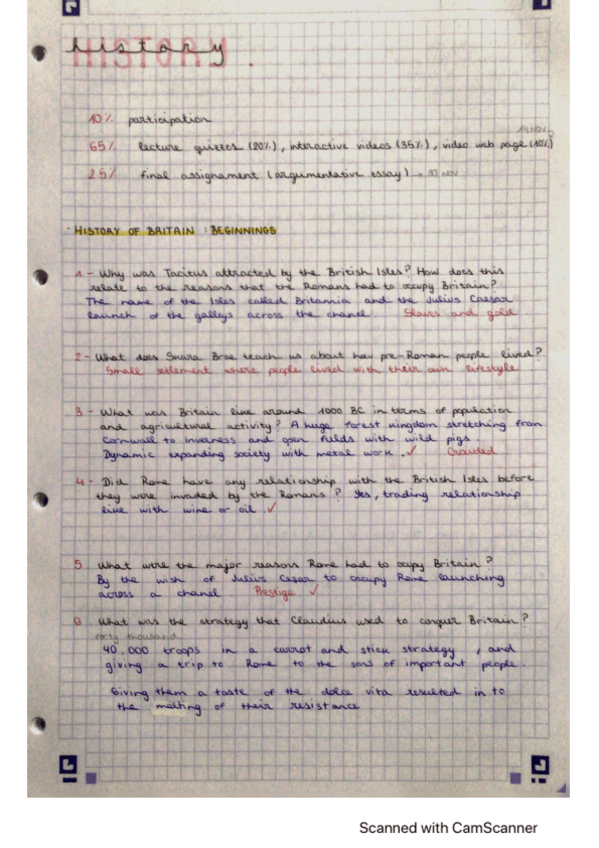 HISTORY.
history
10% participation
14 NOV
65% lecture quizzes (20%), interactive videos (35%), video web page (10%)
25% final assignament (argumentative essay) → 30 NOV
HISTORY OF BRITAIN : BEGINNINGS
1 - Why was Tacitus attracted by the British Isles? How does this
relate to the reasons that the Romans had to occupy Britain?
The name of the Isles called Britannia and the Julius Caesar
launch of the galleys across the chanel. Slaves and gold
2 - What does Skara Brae teach us about how pre-Roman people lived?
Small settlement where people lived with their own lifestyle
3 - What was Britain like around 1000 BC in terms of population
and agricultural activity? A huge forest kingdom stretching from
Cornwall to Inverness and open fields with wild pigs.
Dynamic expanding society with metal work. ✓ Crowded
4 - Did Rome have any relationship with the British Isles before
they were invaded by the Romans? Yes, trading relationship
like with wine or oil ✓
5 What were the major reasons Rome had to ocupy Britain?
By the wish of Julius Cesar to occupy Rome launching
across a chanel. Prestige ✓
6 What was the strategy that Claudius used to conquer Britain?
forty thousand
40.000 troops in a carrot and stick strategy, and
giving a trip to Rome to the sons of important people.
Giving them a taste of the dolce vita resulted in to
the melting of their resistance
Scanned with CamScanner